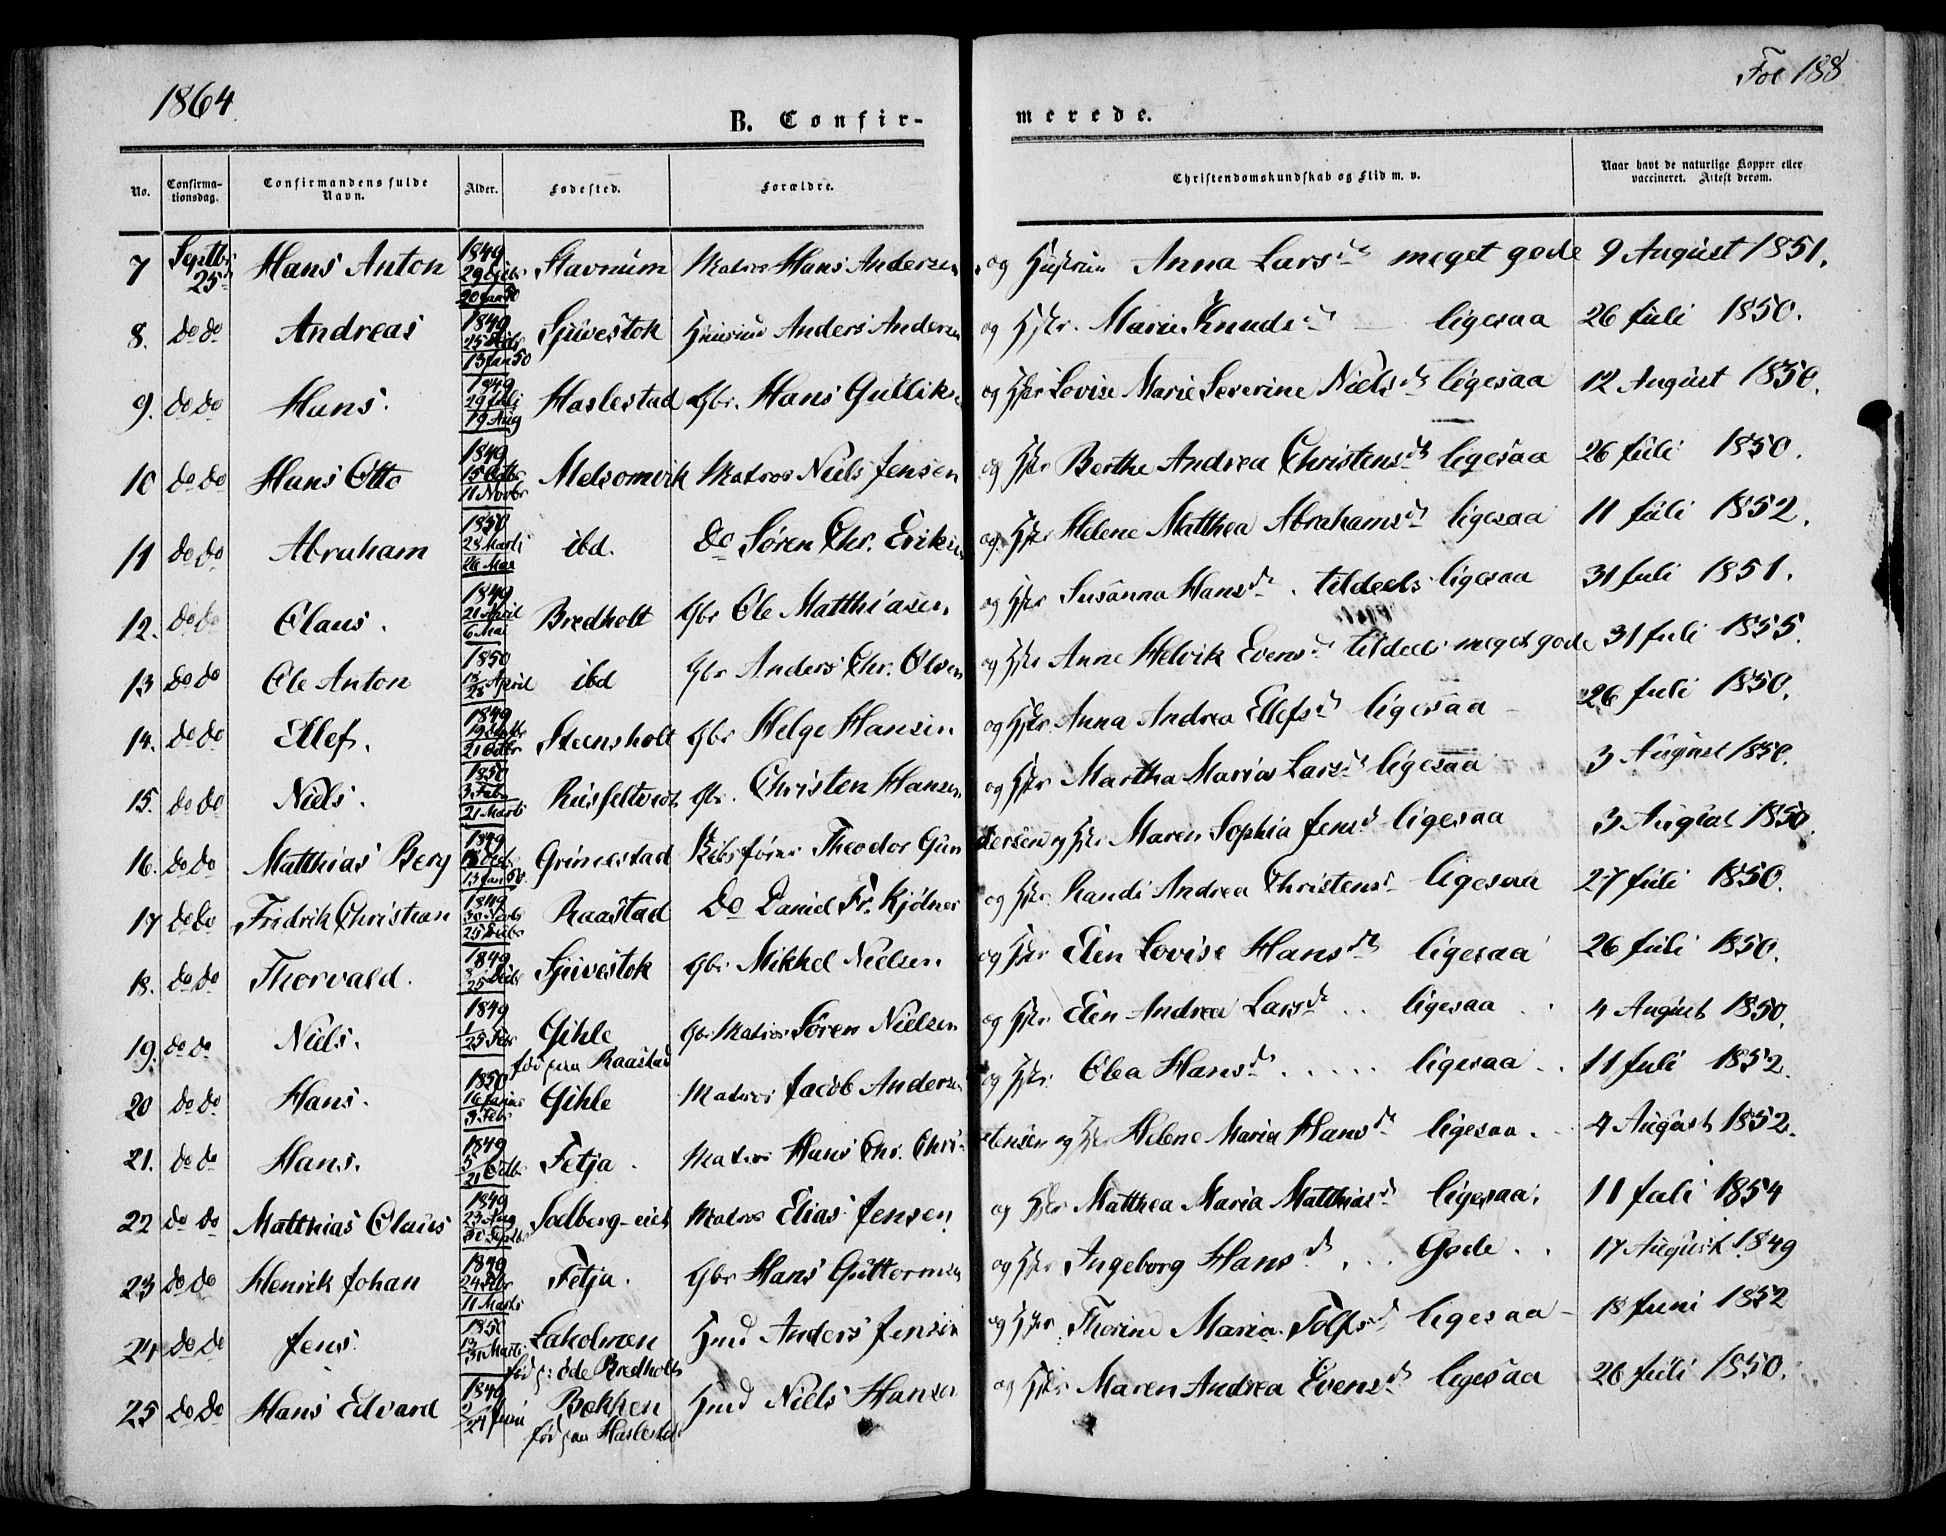 1864
Fol 188
B. Confir-
merede.
No.
Confirma-
tionsdag.
Confirmandens fulde
Navn.
Alder.
Fødested.
Forældre.
Christendomskundskab og Flid m. v.
Naar havt de naturlige Kopper eller
vaccineret. Attest derom.
7 Septbr 25 Hans Anton 1849 20 Jan 50 Stavnum Matros Hans Andersen og Hustru Anna Larsd. meget gode 9 August 1851.
8. do do Andreas 1849 13 Jan 50 Sjuestok Anders Andersen og Marie Knudsd. ligesaa 26 Juli 1850.
9. do do Hans. 1849 29 Juli 19 Aug Haslestad Gbr. Hans Gulliks og Lovise Marie Severine Nielsd. ligesaa 12 August 1850.
10 do do Hans Otto 1849 15 Octbr 11 Novbr Melsomvik Matros Niels Jensen og Berthe Andrea Christensd. ligesaa 26 Juli 1850.
11 do do Abraham 1850 26 Mai ibd. do Søren Chr. Eriksen og Helene Matthea Abrahamsd. ligesaa 11 Juli 1852.
12. do do Claus. 1849 21 April 6 Mai Bredholt Gbr Ole Matthiasen og Susanna Hansd. tildeels ligesaa 31 Juli 1851.
13 do do Ole Anton 1850 April ibd Gbr Anders Chr. Olsen og Anne Helvik Evensd. tildeels meget gode 31 Juli 1855.
14. do do Ellef. 1849 21 Octbr Steensholt Gbr Helge Hansen og Anna Andrea Ellefsd. ligesaa 26 Juli 1850.
15. do do Niels. 1850 3 Febr 21 Marts Gbr. Christen Hansen og Martha Maria Larsd. ligesaa 3 August 1850.
16. do do Matthias Berg 1849 13 Jan 50. Grimestad Skibsfører Theodor Gun dersen og Maren Sophia Jensd. ligesaa 3 August 1850.
17 do do Fridrik Christian 1849 30 Novbr Raastad do Daniel Fr. Kjølner og Randi Andrea Christensd. ligesaa 27 Juli 1850.
18. do do Thorvald. 1849 8 25 Decbr Sjuestok Gbr Mikkel Nielsen og Elen Lovise Hansd. ligesaa 26 Juli 1850.
19. do do Niels. 1849 1 25 Febr Gihle Gbr Matros Søren Nielsen og Elen Andrea Larsd. ligesaa 4 August 1850.
fød paa Raastad
20 do do Hans. 1850 3 Febr Gihle Matros Jacob Andersen og Olea Hansd. ligesaa 11 Juli 1852.
21. do do Hans. 1849 5 21 Octbr Fetja. Matros Hans Chr. Chri- stensen og Helene Maria Hansd. ligesaa. 4 August 1852.
22 do do Matthias Claus 1849 23 Aug 30 Septbr Solberg-eiet Matros Elias Jensen og Matthea Maria Matthiasd. ligesaa. 11 Juli 1854
23 do do Henrik Johan 1849 11 Marts Fetja. Gbr Hans Guttormsen og Ingeborg Hansd. Gode. 17 August 1849
24 do do Jens. 1850 Marts Lakolmen Hmd Anders Jensen og Thorine Maria Tolfsd. ligesaa 18 Juni 1852
fød p: øde Bredholt
25 do do Hans Edvard 1849 2 24 Juni Bekken Hmd Niels Hansen og Maren Andrea Evensd. ligesaa 26 Juli 1850.
fød paa Haslestad